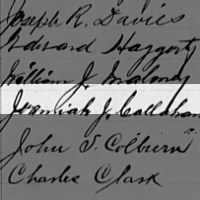 Joseph R. Davies
Edward Haggerty
William J. Maloney
Jeremiah J. Callahan
John T. Colburn
Charles Clark